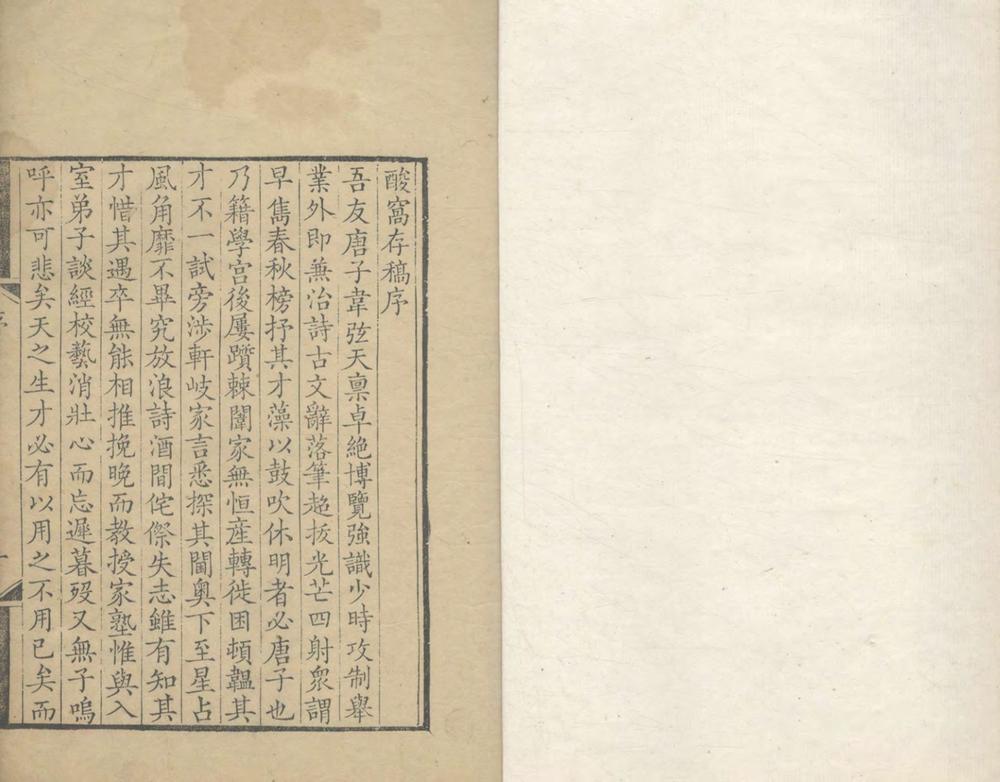 酸窩存稿序
吾友唐子韋弦天禀卓絶博覽強識少時攻制舉
業外即兼治詩古文辭落筆超拔光芒四射衆謂
早雋春秋榜抒其才藻以鼓吹休明者必唐子也
乃籍學宮後屢躓棘闈家無恒産轉徙困頓韞其
才不一試旁涉軒岐家言悉探其閫奥下至星占
風角靡不畢究放浪詩酒間侘傺失志雖有知其
才惜其遇卒無能相推挽晚而教授家塾惟與入
室弟子談經校藝消壯心而忘遲暮歿又無子嗚
呼亦可悲矣天之生才必有以用之不用已矣而